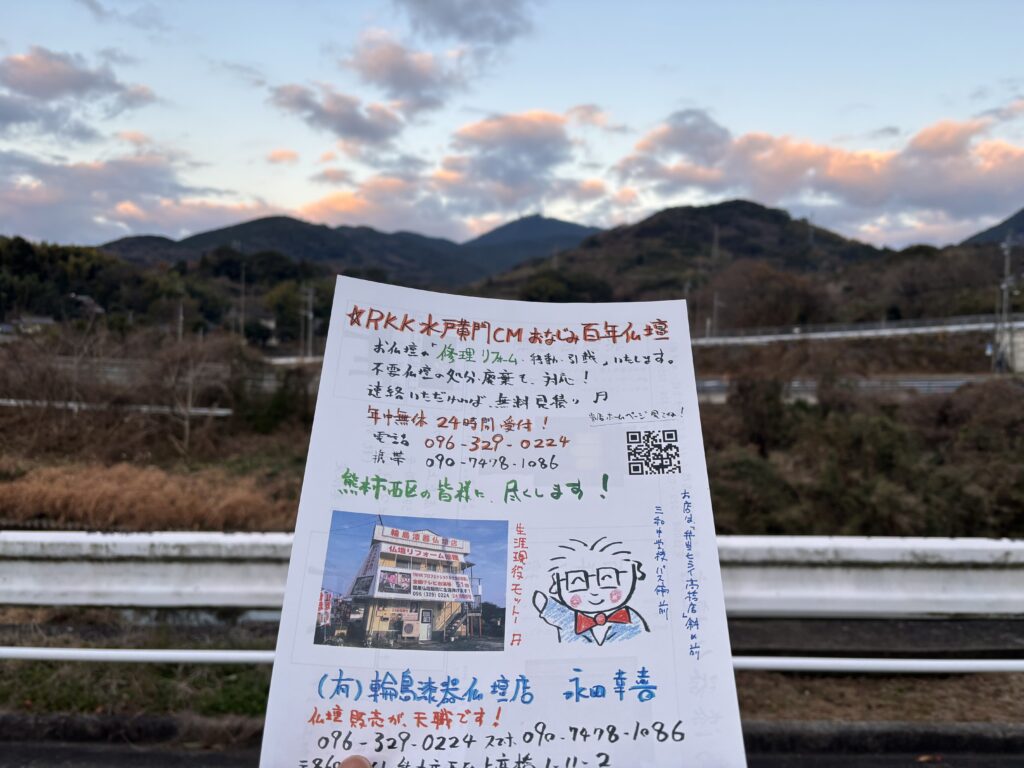 ☆RKK水戸黄門CMおなじみ百年仏壇
お仏壇の「修理リフォーム・移動・引越」いたします。
不要仏壇の処分・廃棄も、対応!
連絡いただければ無料見積り
年中無休24時間受付!
当店ホームページ見てね!
電話 096-329-0224
携帯 090-7478-1086
熊本市西区の皆様に、尽くします!
輪島漆器仏壇店
仏壇リフォーム
096(329)0224
生涯現役モットー
お店は「弁当ヒライ高橋店」斜め前
三和中学校バス停前
(有)輪島漆器仏壇店 永田幸喜
仏壇販売が、天職です!
096-329-0224 スマホ 090-7478-1086
〒860 熊本市西区上高橋1-11-2